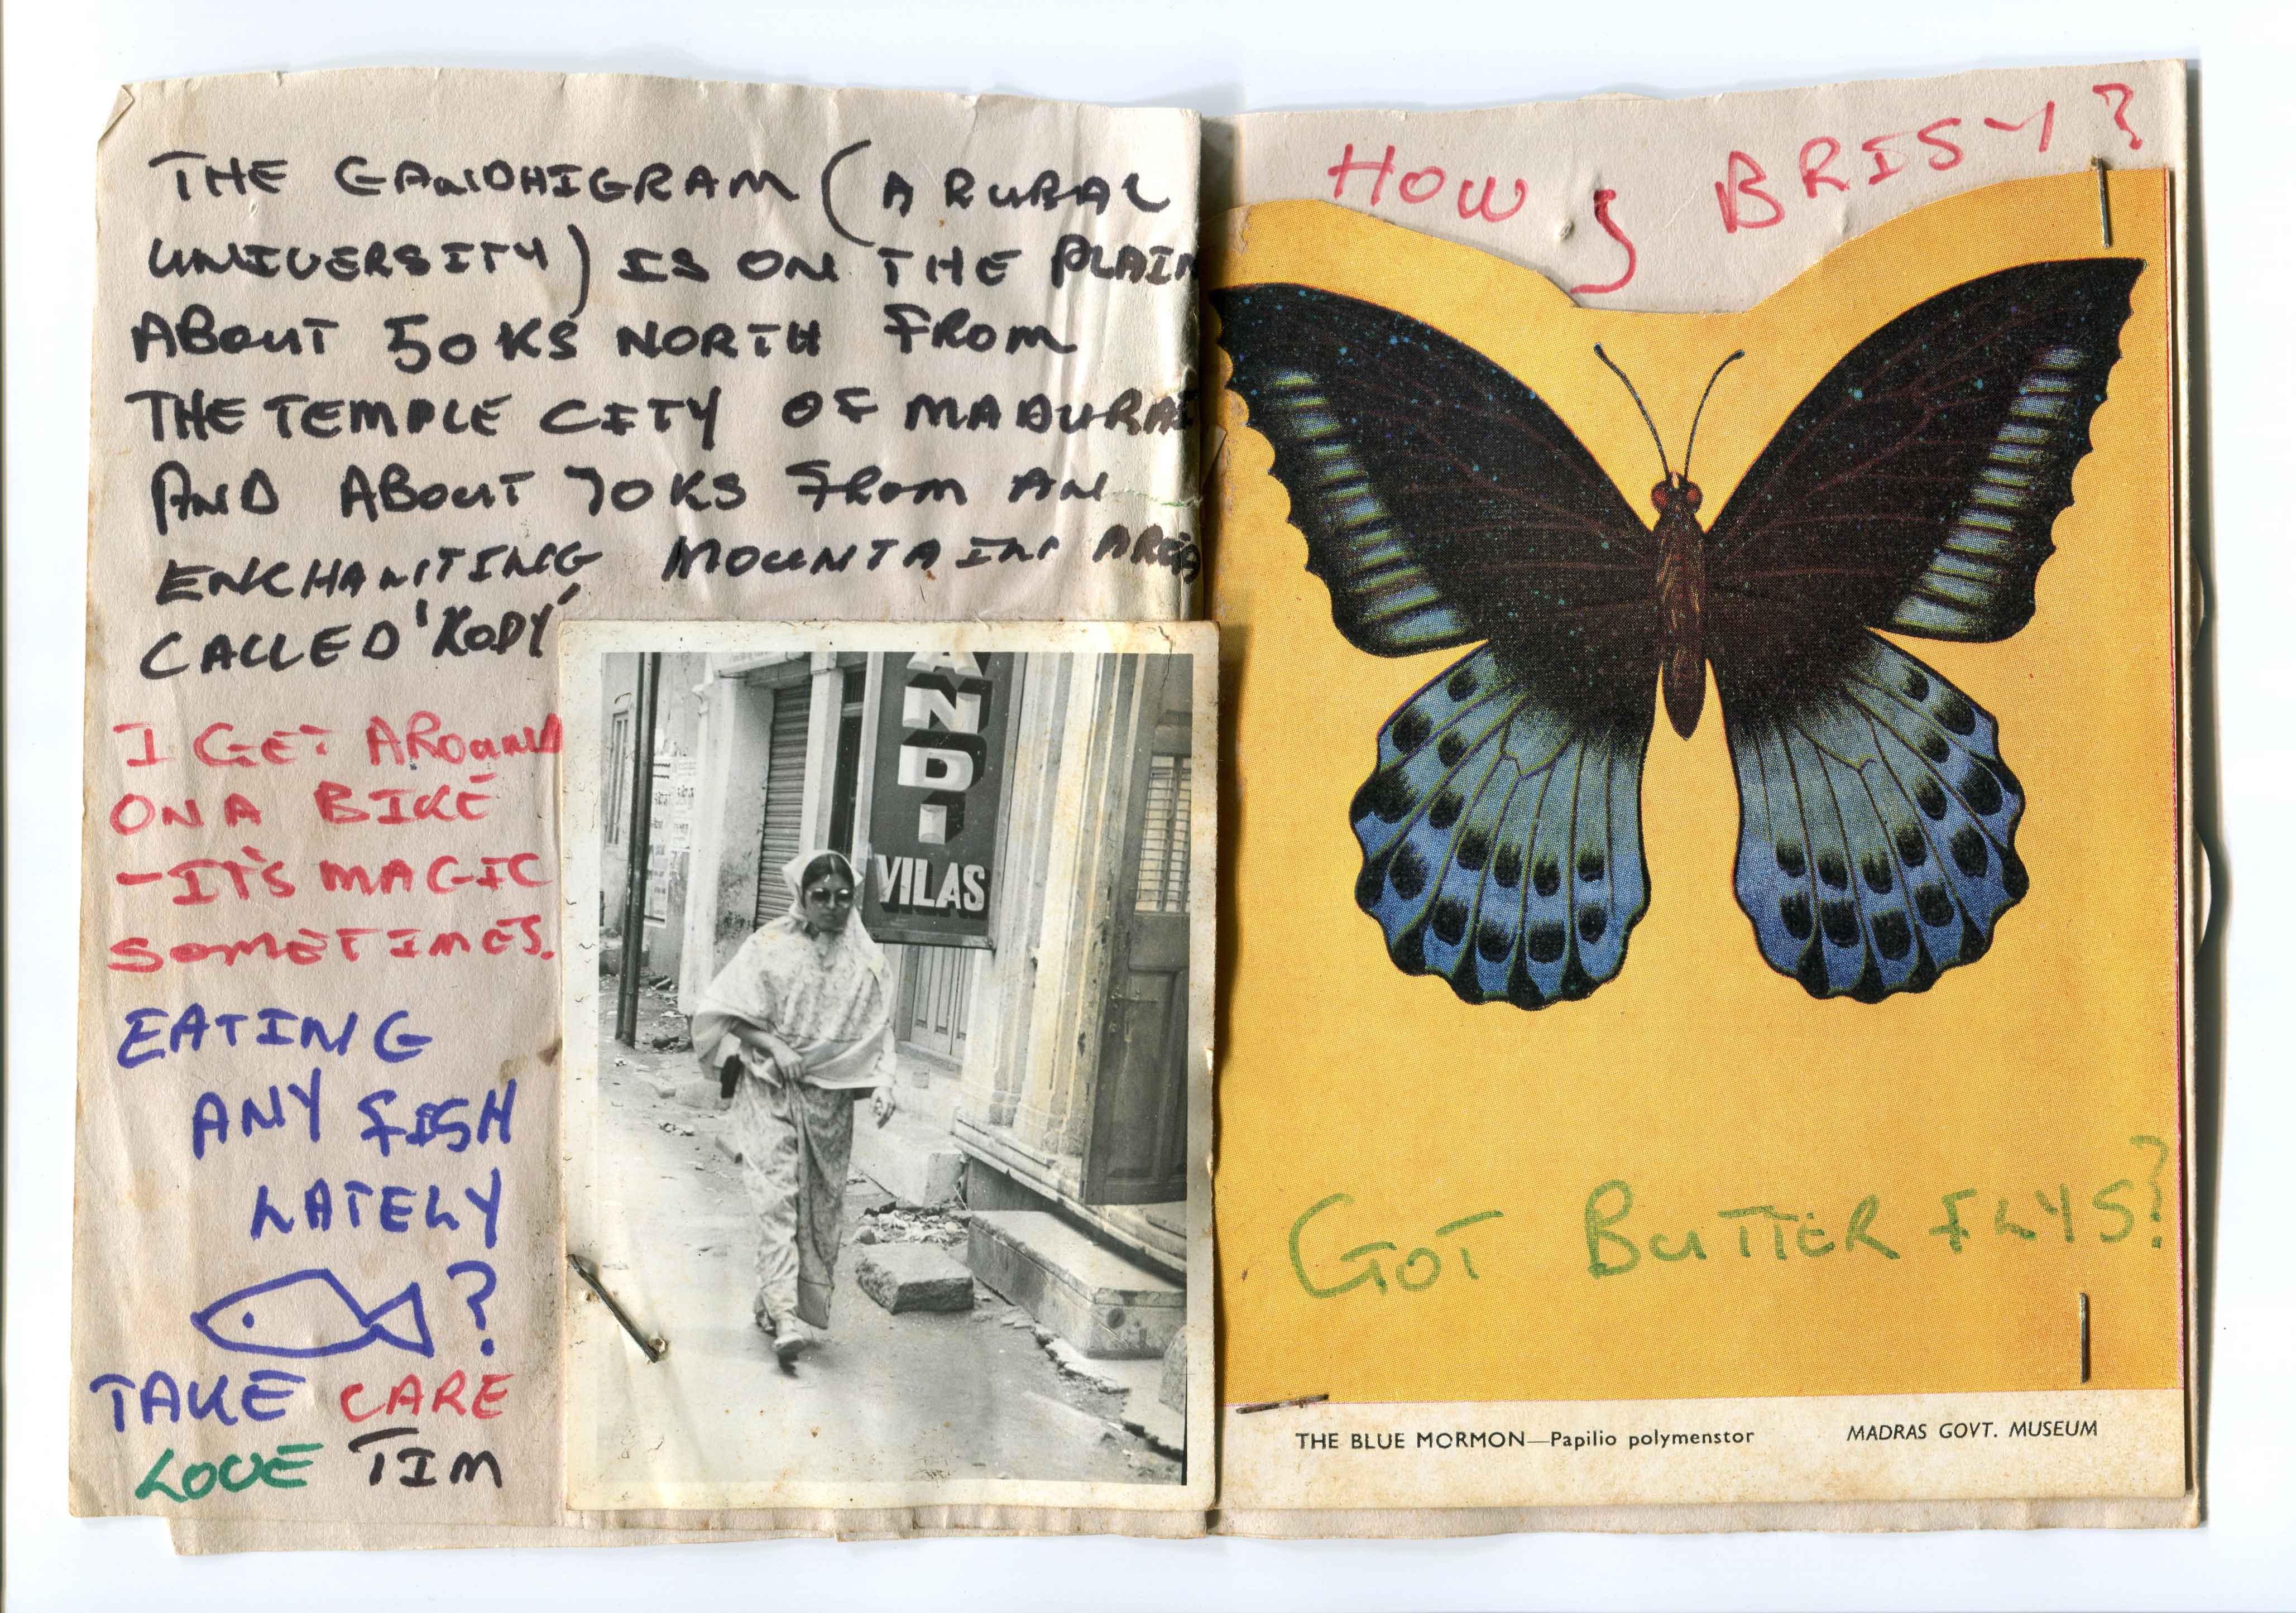 THE GANDHIGRAM (A RURAL
UNIVERSITY) IS ON THE PLAIN
ABOUT 50KS NORTH FROM
THE TEMPLE CITY OF MADURAI
AND ABOUT 70KS FROM AN
ENCHANTING MOUNTAIN AREA
CALLED 'KODY'
I GET AROUND
ON A BIKE
-IT'S MAGIC
SOMETIMES.
EATING
ANY FISH
LATELY
?
TAKE CARE
LOVE TIM
ANDI
VILAS
HOW S BRISY?
GOT BUTTER FLYS?
THE BLUE MORMON—Papilio polymenstor
MADRAS GOVT. MUSEUM